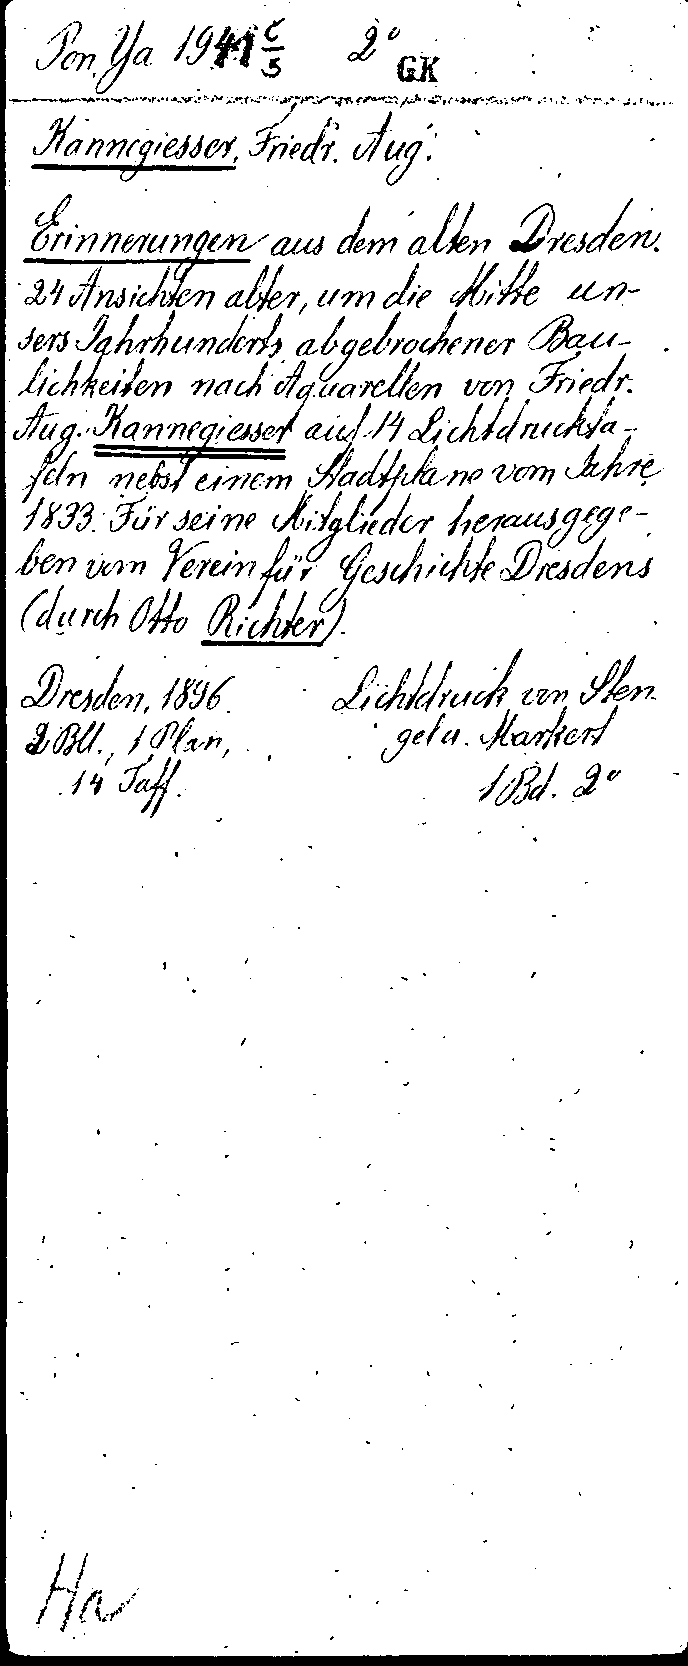 Pon. Ya 1941 c/3 2° GK
Kannegiesser, Friedr. Aug.
Erinnerungen aus dem alten Dresden.
24 Ansichten alter, um die Mitte un-
sers Jahrhunderts abgebrochener Bau-
lichkeiten nach Aquarellen von Friedr.
Aug. Kannegiesser auf 14 Lichtdruckta-
feln nebst einem Stadtplane vom Jahre
1833. Für seine Mitglieder herausgege-
ben vom Verein für Geschichte Dresdens
(durch Otto Richter).
Dresden, 1896. Lichtdruck von Sten-
2 Bll., 1 Plan, gel u. Markert
14 Taff. 1 Bd. 2°
Ha